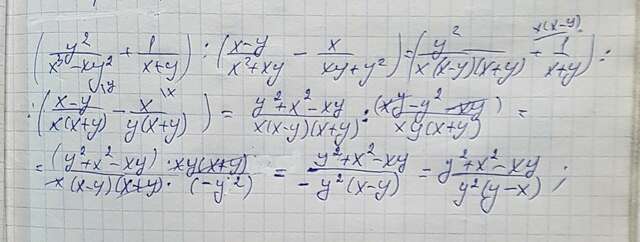 (y²/(x³-xy²) + 1/(x+y)) : ((x-y)/(x²+xy) - x/(xy+y²)) = (y²/(x(x-y)(x+y)) + 1/(x+y) x(x-y)) :
: ((x-y)/(x(x+y)) \y - x/(y(x+y)) \x) = (y²+x²-xy)/(x(x-y)(x+y)) : (xy-y²-xy)/(xy(x+y)) =
= ((y²+x²-xy)·xy(x+y))/(x(x-y)(x+y)·(-y²)) = (y²+x²-xy)/(-y²(x-y)) = (y²+x²-xy)/(y²(y-x)) ;